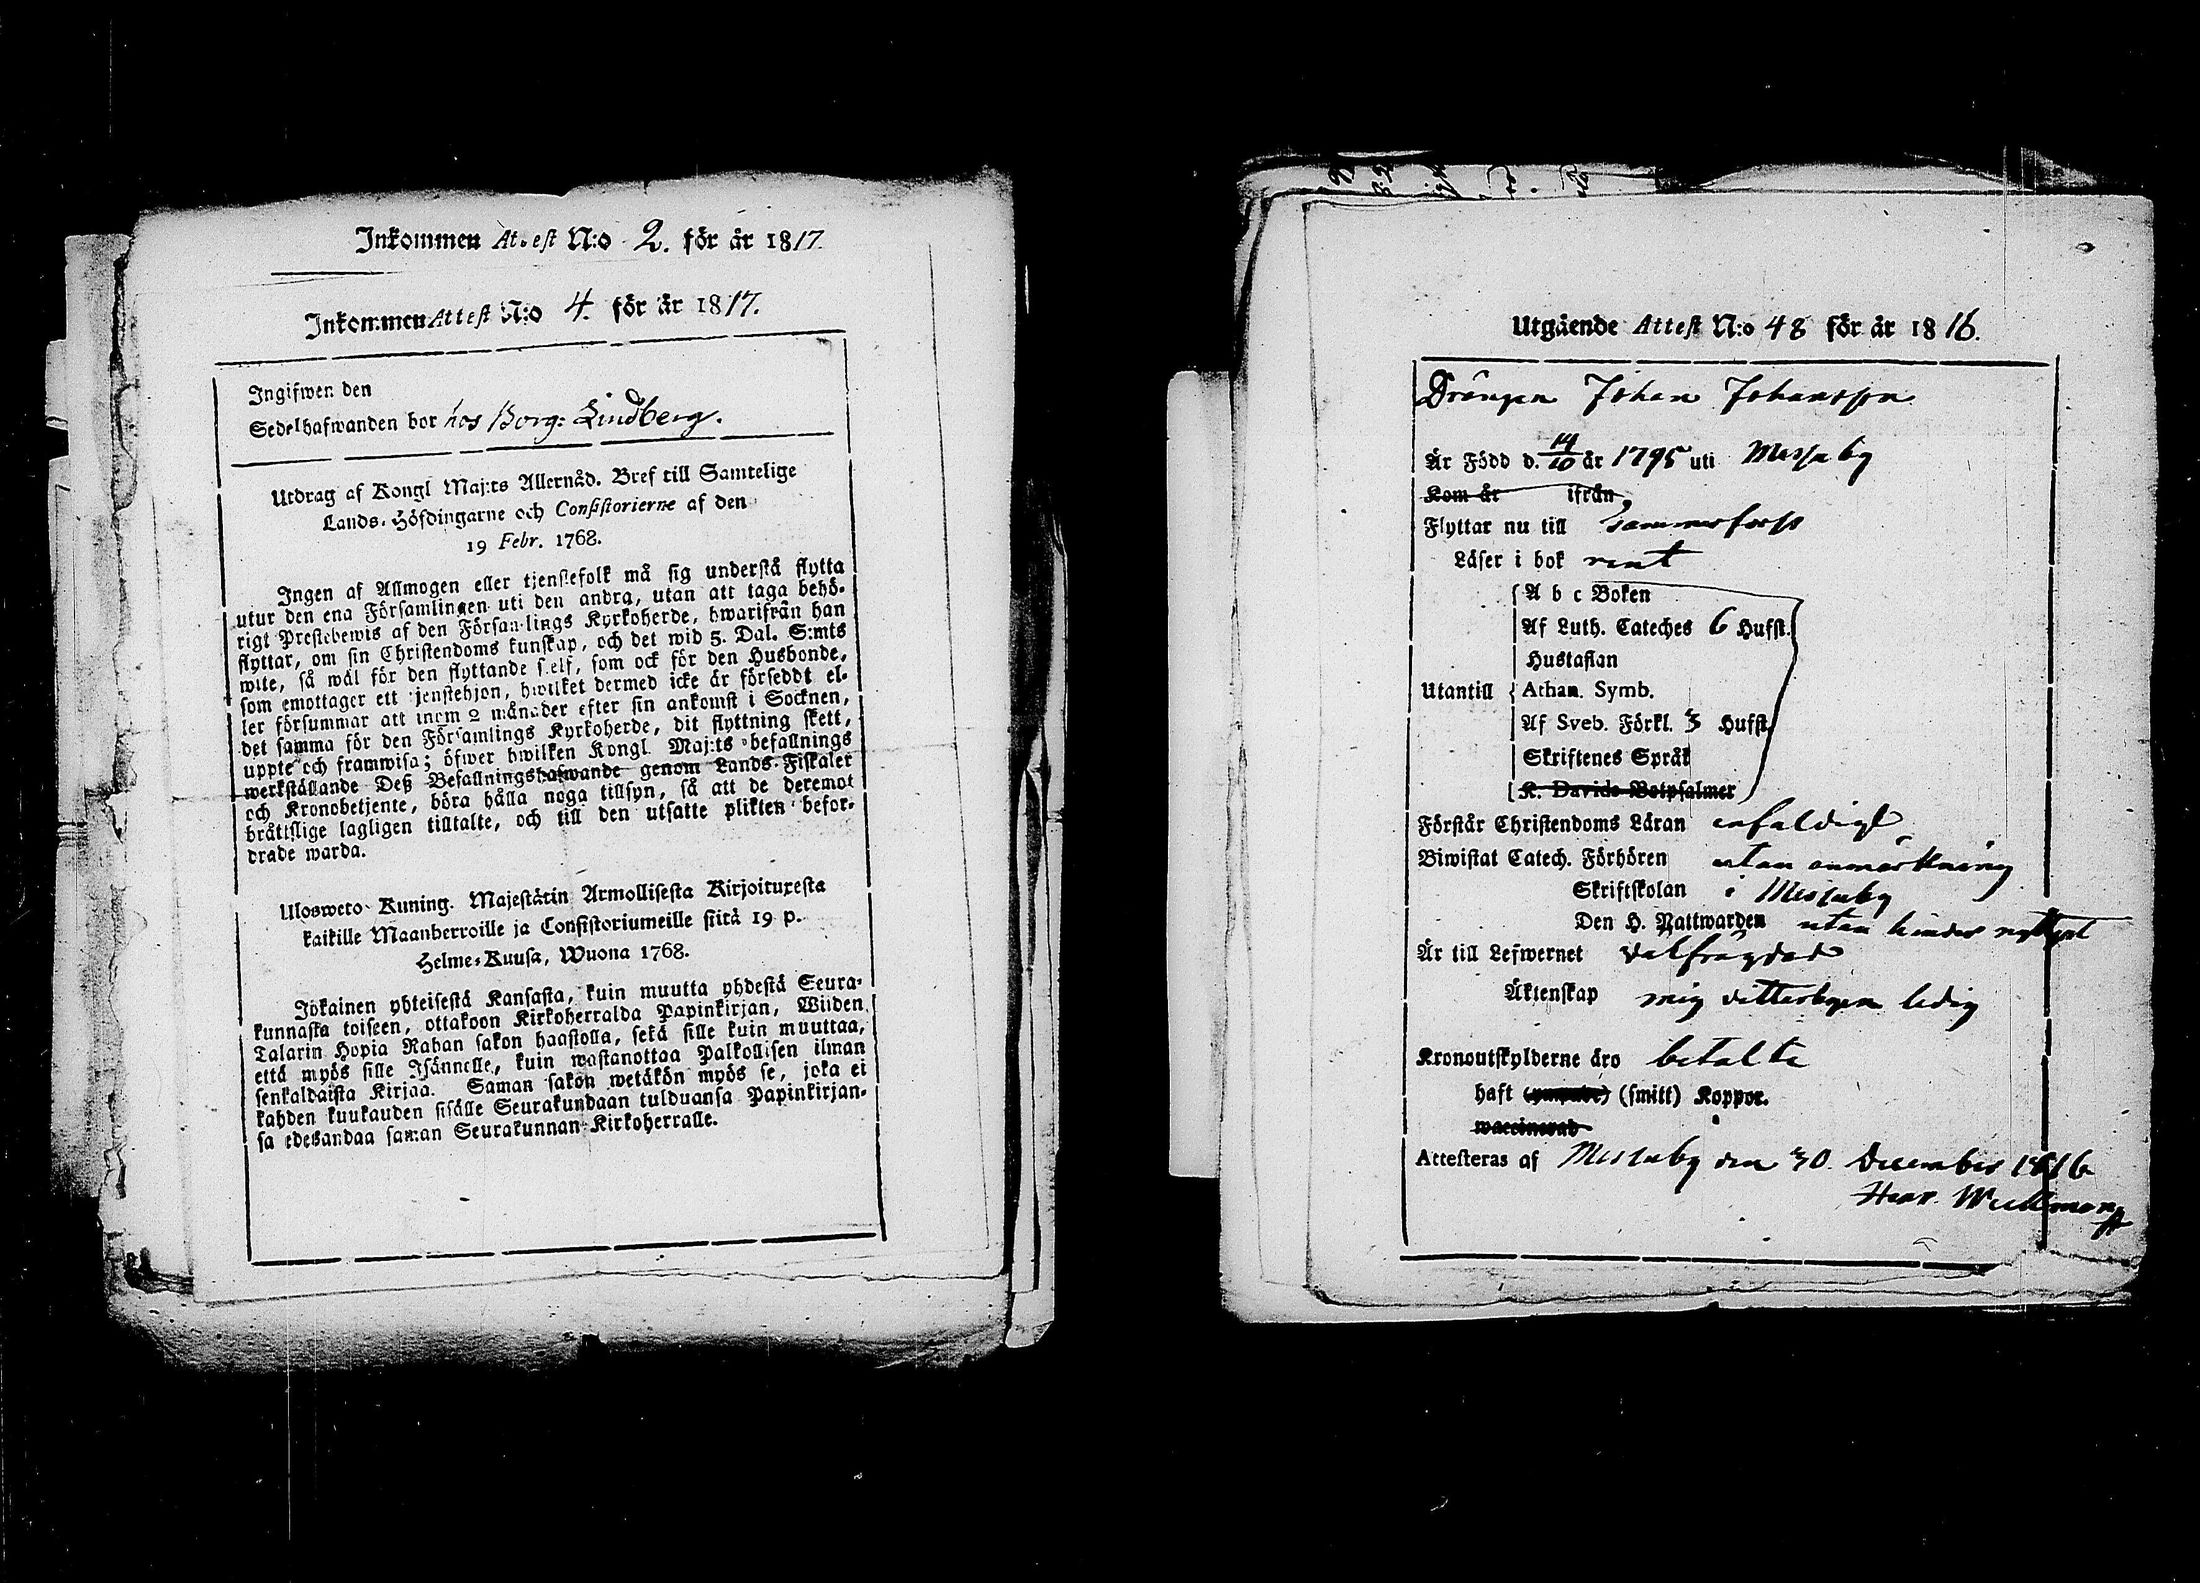 Inkommen Attest N:o 2. för år 1817.
Inkommen Attest N:o 4. för år 1817.
Ingifwen den
Sedelhafwanden bor hos Borg: Lindberg.
Utdrag af Kongl Maj:ts Allernåd. Bref till Samtelige
Lands-Höfdingarne och Consistorierne af den
19 Febr. 1768.
Ingen af Allmogen eller tjenstefolk må sig understå flytta
utur den ena Församlingen uti den andra, utan att taga behö-
rigt Prestebewis af den Församlings Kyrkoherde, hwarifrån han
flyttar, om sin Christendoms kunskap, och det wid 5. Dal. S:mts
wite, så wäl för den flyttande self, som ock för den Husbonde,
som emottager ett tjenstehjon, hwilket dermed icke är försedt el-
ler försummar att inom 2 månader efter sin ankomst i Socknen,
det samma för den Församlings Kyrkoherde, dit flyttning skett,
uppte och framwisa; öfwer hwilken Kongl. Maj:ts befallnings
werkställande Deß Befallningshafwande genom Lands-Fiskaler
och Kronobetjente, böra hålla noga tillsyn, så att de deremot
bråttslige lagligen tilltalte, och till den utsatte plikten befor-
drade warda.
Ulosweto Kuning. Majestätin Armollisesta Kirjoituxesta
kaikille Maanherroille ja Consistoriumeille siitä 19 p.
Helme-Kuusa, Wuona 1768.
Jokainen yhteisestä Kansasta, kuin muutta yhdestä Seura-
kunnasta toiseen, ottakoon Kirkoherralda Papinkirjan, Wiiden
Talarin Hopia Rahan sakon haastolla, sekä sille kuin muuttaa,
että myös sille Isännelle, kuin wastanottaa Palkollisen ilman
senkaldaista Kirjaa. Saman sakon wetäkön myös se, joka ei
kahden kuukauden sisälle Seurakundaan tulduansa Papinkirjan-
sa edesandaa saman Seurakunnan Kirkoherralle.
Utgående Attest N:o 48 för år 1816.
Drängen Johan Johansson
Är Född d. 14/10 år 1795 uti Messuby
Kom år ifrån
Flyttar nu till Tammerforss
Läser i bok rent
A b c Boken
Af Luth. Cateches 6 Hufst.
Hustaflan
Utantill Athan. Symb.
Af Sveb. Förkl. 3 Hufst.
Skriftenes Språk
K. Davids Botpsalmer
Förstår Christendoms Läran enfaldigt
Biwistat Catech. Förhören utan anmärkning
Skriftskolan i Messuby
Den H. Nattwarden utan hinder nyttjat
Är till Lefwernet välfrägdad
Äktenskap mig vitterligen ledig
Kronoutskylderne äro betalte
haft (smitt) Koppor.
waccinerad
Attesteras af Messuby den 30. December 1816